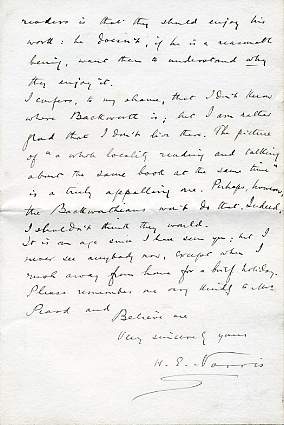 readers is that they should enjoy his
work: he doesn't, if he is a reasonable
being, want them to understand why
they enjoy it.
I confess, to my shame, that I don't know
where Backworth is; but I am rather
glad that I don't live there. The picture
of "a whole locality reading and talking
about the same book at the same time"
is a truly appalling one. Perhaps, however,
the Backworthians won't do that. Indeed,
I shouldn't think they would.
It is an age since I have seen you; but I
never see anybody now, except when I
rush away from home for a brief holiday.
Please remember me very kindly to Mrs
and
Believe me
Very sincerely yours
W. E. Norris